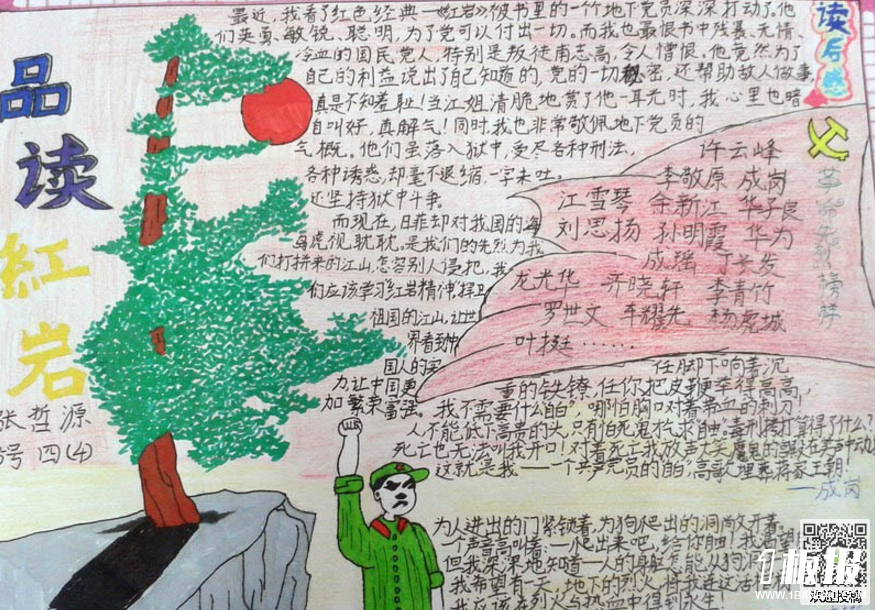 品读
紅岩
张哲源
号 四(4)
读后感
最近，我看了红色经典一《红岩》，被书里的一个地下党员深深打动了。他
们英勇、敏锐、聪明，为了党可以付出一切。而我也最恨书中残暴、无情、
冷血的国民党人，特别是叛徒甫志高，令人憎恨。他竟然为了
自己的利益说出了自己知道的，党的一切秘密，还帮助敌人做事，
真是不知羞耻！当江姐清脆地赏了他一耳光时，我心里也暗
自叫好，真解气！同时，我也非常敬佩地下党员的
气概。他们虽落入狱中，受尽各种刑法，
各种诱惑，却毫不退缩，一字未吐。
还坚持狱中斗争。
而现在，日菲却对我国的海
岛虎视耽耽。是我们的先烈为我
们打拼来的江山，怎容别人侵犯，我
们应该学习红岩精神，捍卫
祖国的江山，让世
界看到中
国人的实
力，让中国更
加繁荣富强。
许云峰
李敬原 成岗
江雪琴 余新江 华子良
刘思扬 孙明霞 华为
成瑶 丁长发
龙光华 齐晓轩 李青竹
罗世文 车耀先 杨虎城
叶挺……
革命
榜样
任脚下响着沉
重的铁镣，任你把皮鞭举得高高，
我不需要什么自白，哪怕胸口对着带血的刺刀！
人不能低下高贵的头，只有怕死鬼才乞求自由。毒刑拷打算得了什么？
死亡也无法叫我开口！对着死亡我放声大笑，魔鬼的宫殿在笑声中动
这就是我一一个共产党员的自白，高歌埋葬蒋家王朝！
—成岗
为人进出的门紧锁着，为狗爬出的洞敞开着，
一个声音高叫着：一爬出来吧，给你自由！我渴望
但我深深地知道一人的身躯怎能从狗洞
我希望有一天，地下的烈火，将我连这活
我应该在烈火与热血中得到永生！
1板报
WWW.1BANBAO.COM